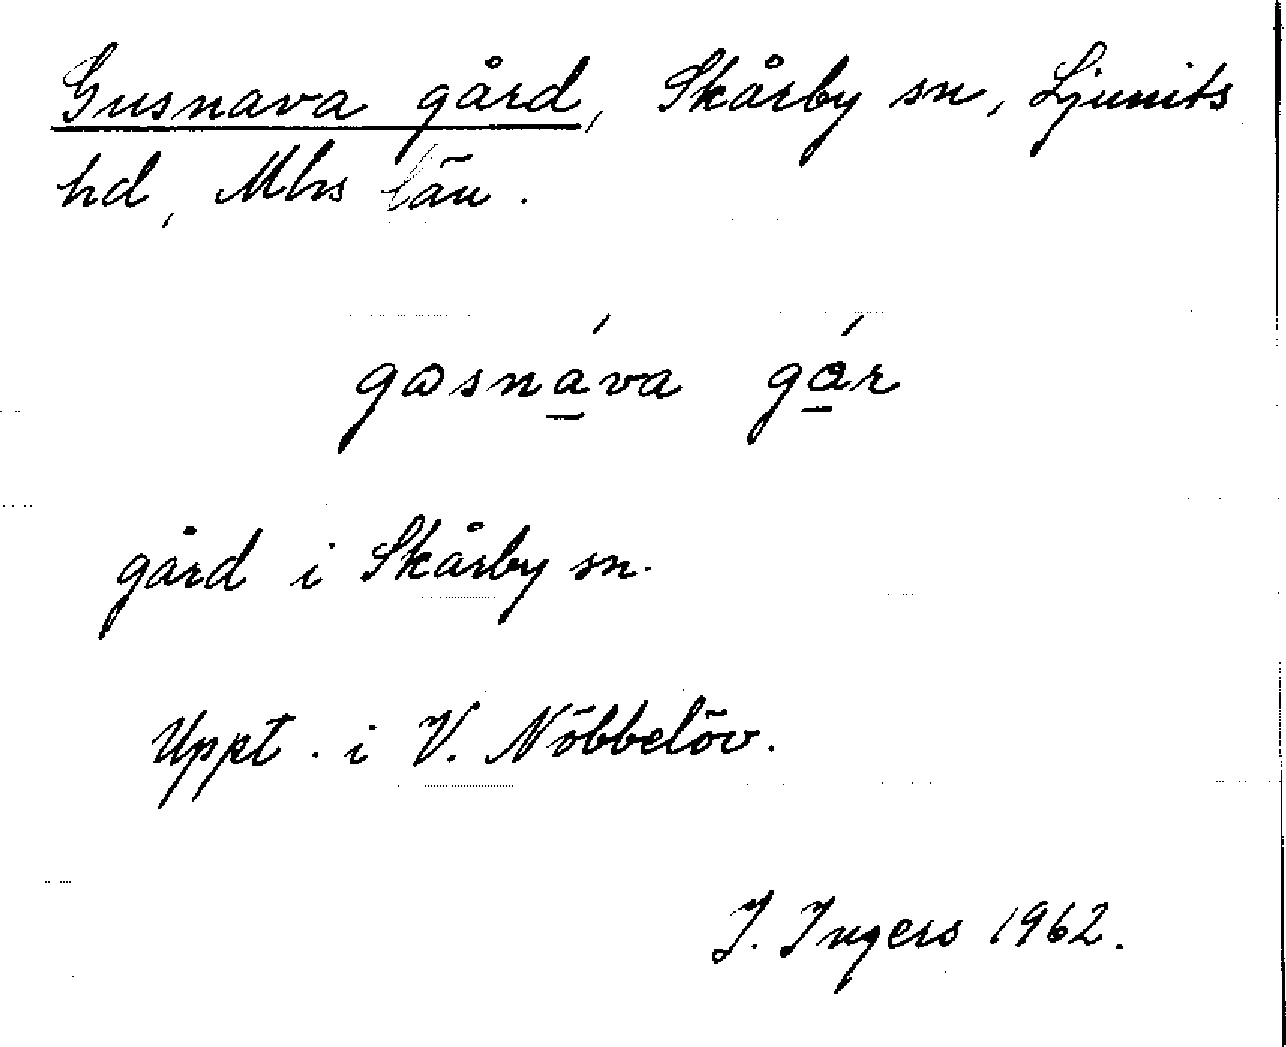 Gusnava gård, Skårby sn, Ljunits
hd, Mhs län.
gɷsná̱va gá̱r
gård i Skårby sn.
Uppt. i V. Nöbbelöv.
I. Ingers 1962.